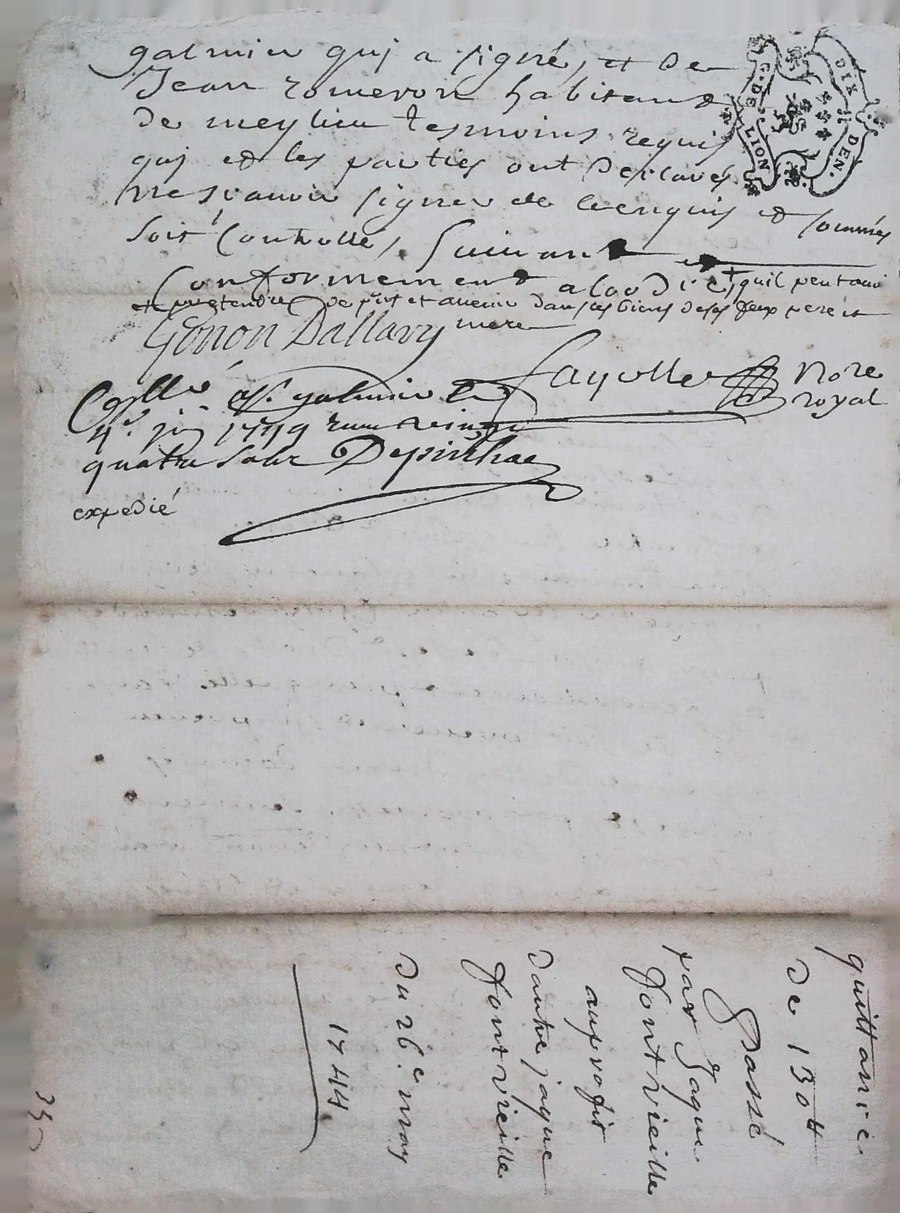 galmier qui a signé, et de
Jean romeron habitant
de meylieu tesmoins requis
qui et les parties ont declaré
ne scavoir signer de ce enquis et sommés
soit controllé, suivant
Conformement a lordce
+ quil peut avoir
et pretendre de pnt et avenir dans les biens de ses feux pere et
mere
Genon Dallary
fayolle nore
royal
Collé a St galmier le
4e jui 1749 reçu vingt
quatre sols
expedié
G. DE LION
DIX DEN.
quittance
de 130 ll
Passé
par Jaque
fontvieille
au profit
dautre jaque
fontvieille
du 26e may
1744